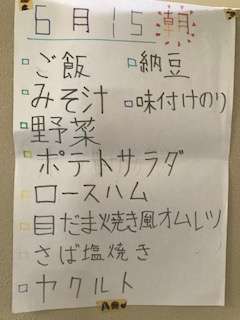 6月15朝
ご飯 納豆
みそ汁 味付けのり
野菜
ポテトサラダ
ロースハム
目だま焼き風オムレツ
さば塩焼き
ヤクルト